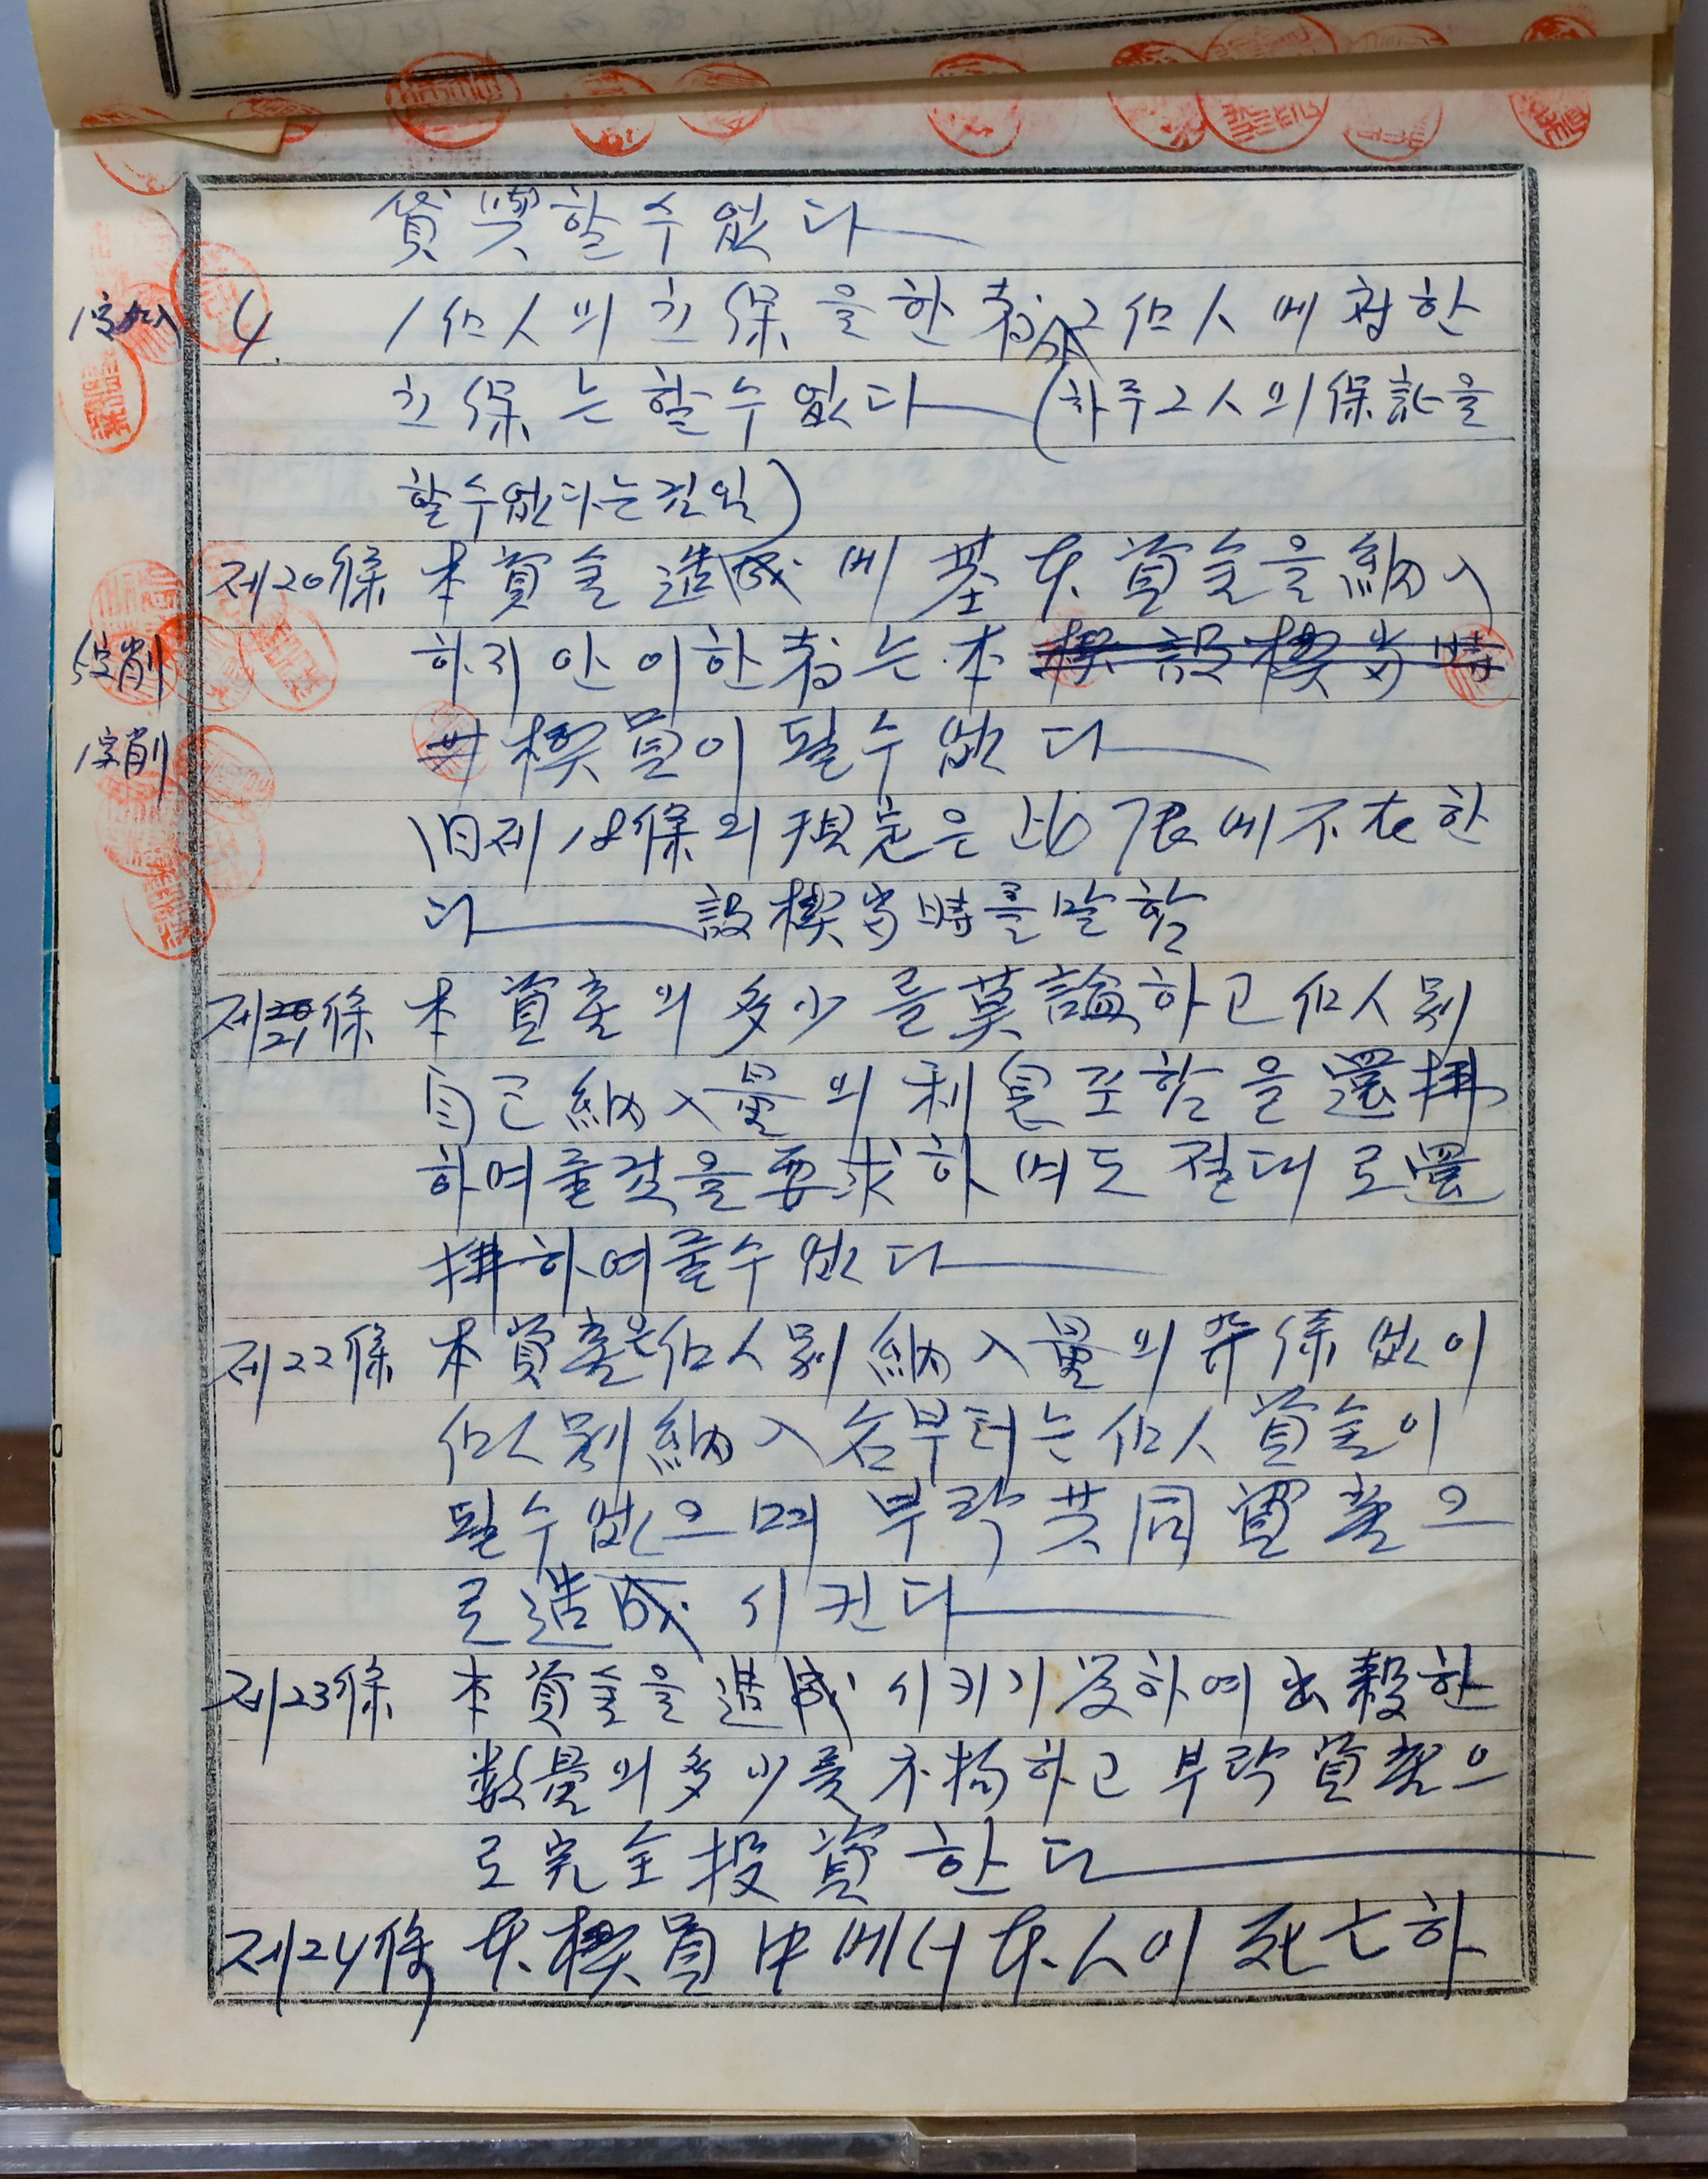 貸與할수없다
1字加入 4. 1個人의 立保을한者ㅅ 2個人에 対한
立保는할수없다 (하루2人의保証을
할수없다는것임)
제20條 本資金造成에 基本資金을納入
5字削 하지안이한者는 本 楔設楔当時
1字削 楔員이될수없다
旧제18條의規定은此限에不在한
다 設楔当時를말함
제21條 本資産의多少를莫論하고個人別
自己納入量의利息포함을還拂
하여줄것을要求하여도절대로還
拂하여줄수없다
제22條 本資産은個人別納入量의関係없이
個人別納入名부터는個人資金이
될수없으며부락共同資産으
로造成시킨다
제23條 本資金을造成시키기爲하여出穀한
数量의多少를不拘하고부락資産으
로完全投資한다
제24條 本楔員中에서本人이死亡하